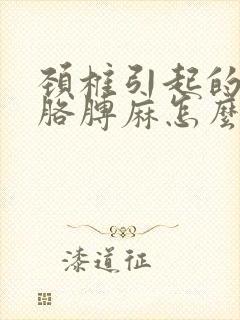 颈椎引起的
胳膊麻怎麼
漆道征